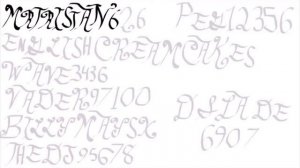 MATRISTAN626
PEY12356
ENGLISHCREAMCAKES
WAVE3436
VADER97100
DSLADE
6907
BILLYMAYSX
THEDJ95678